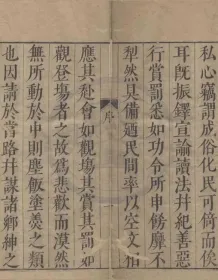 私心竊謂成俗化民可倚而俟
耳既振鐸宣諭讀法幷紀善惡
行賞罰悉如功令所申飭靡不
犁然具備迺民間率以空文相
序
應其赴會如觀場其賞罰如
觀登場者之故爲悲歡而漠然
無所動於中則塵飯塗羮之類
也因請於當路幷謀諸鄉紳之